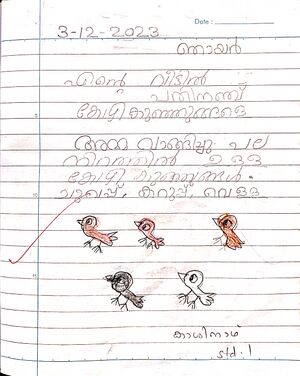 Date :
3-12-2023
ഞായർ
എന്റെ വീട്ടിൽ
പതിനഞ്ച്
കോഴികുഞ്ഞുങ്ങളെ
അമ്മ വാങ്ങിച്ചു പല
നിറത്തിൽ ഉള്ള
കോഴി കുഞ്ഞുങ്ങൾ.
ചുവപ്പ്, കറുപ്പ്, വെള്ള
കാശിനാഥ്
std. 1